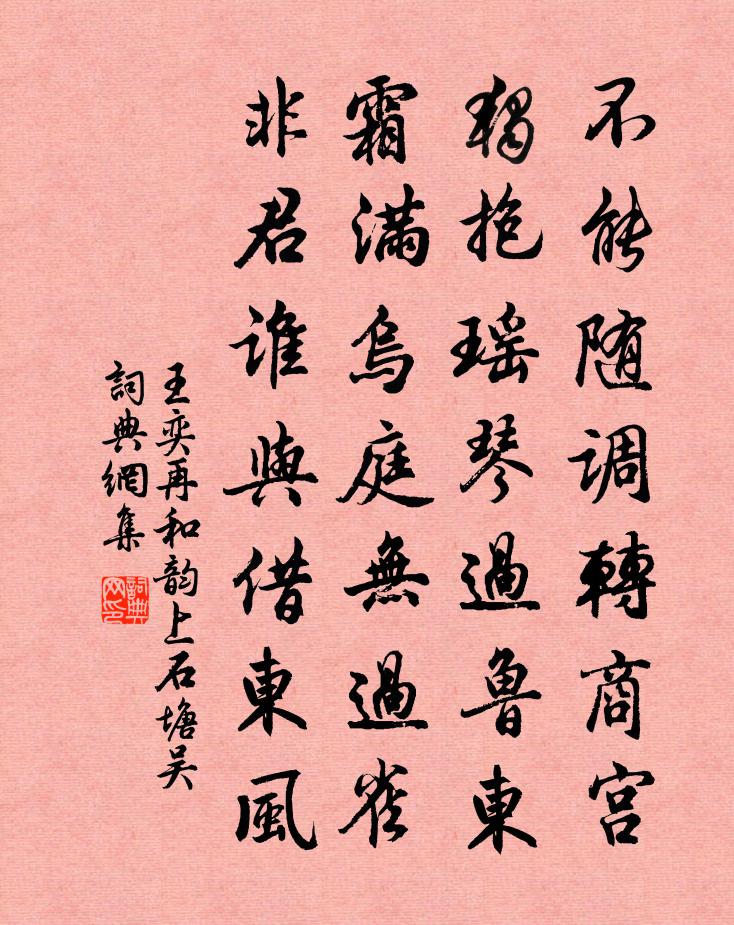 不能随调轉商宫
獨抱瑶琴過魯東
霜滿烏庭無過雀
非君誰與借東風
王奕再和韵上石塘吴
詞典網集
詞典網印